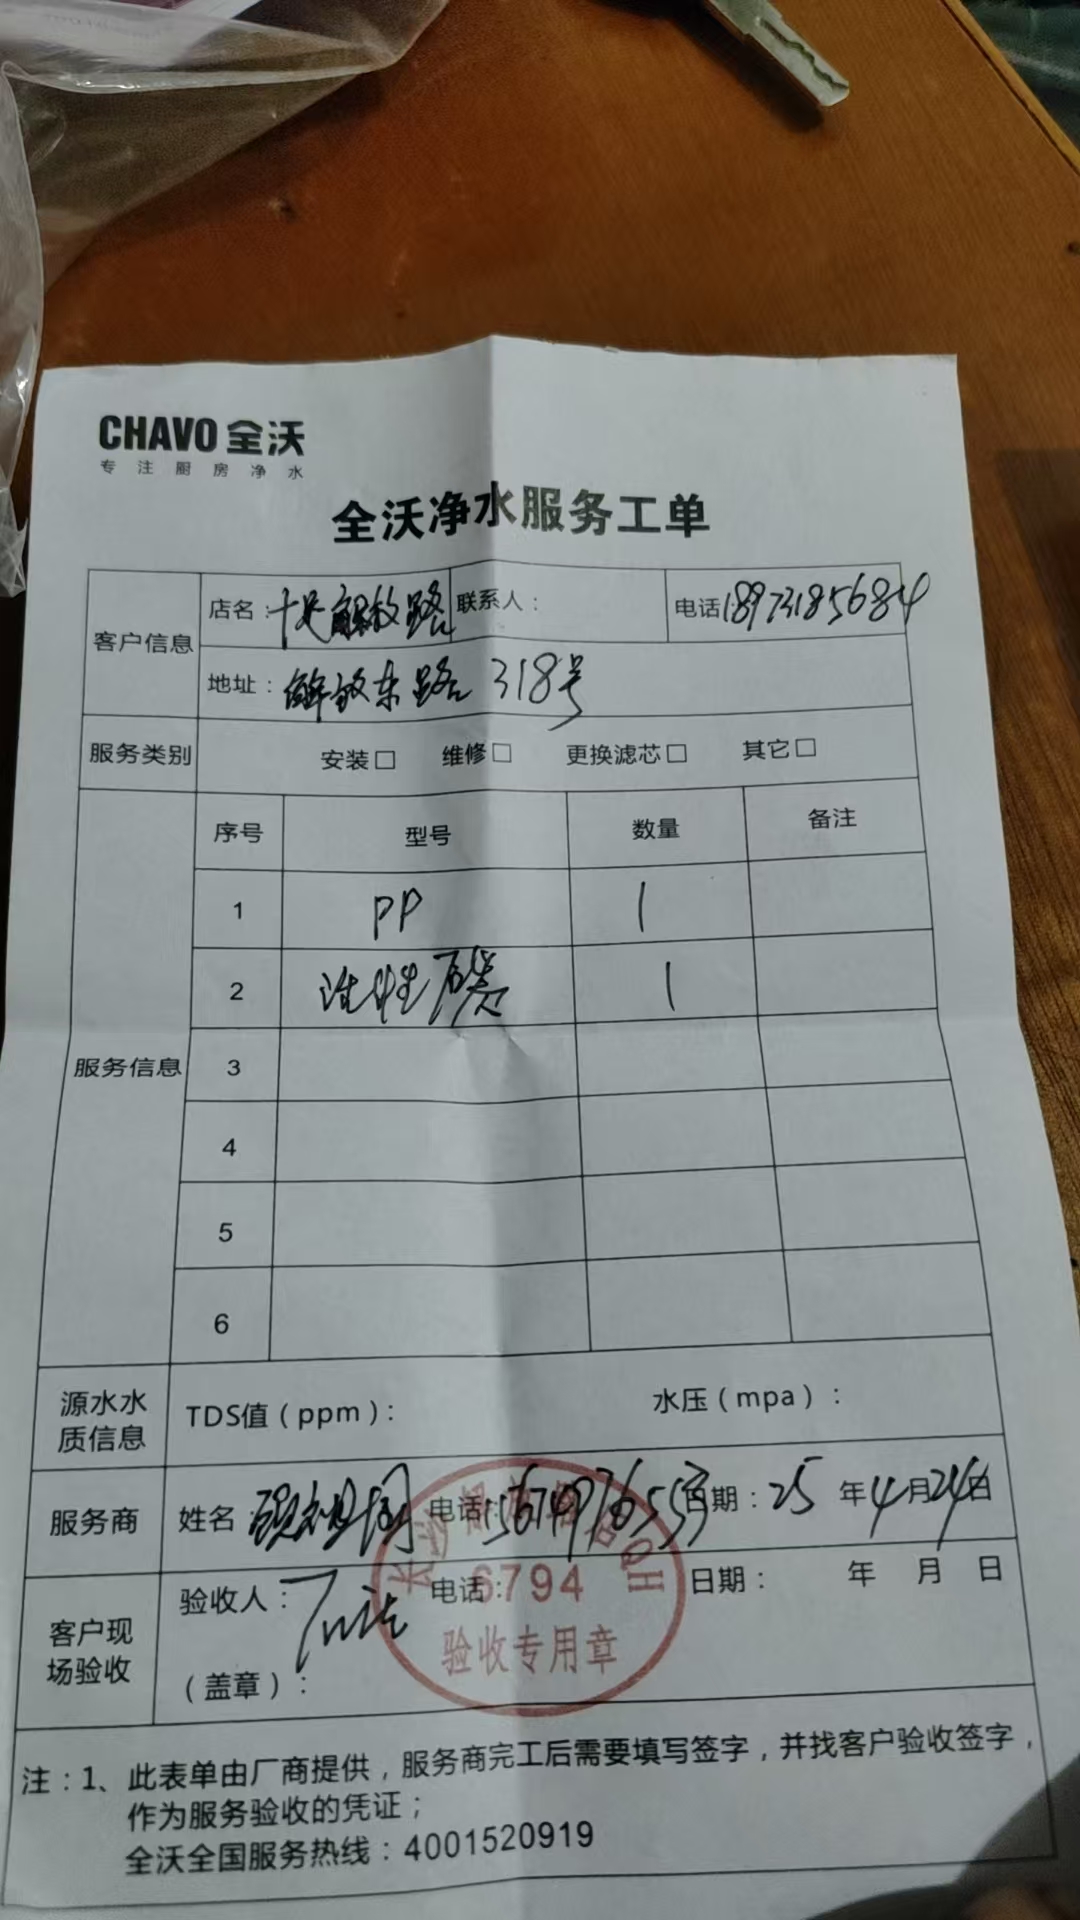 CHAVO 全沃
专注厨房净水
全沃净水服务工单
客户信息 店名： 解放路 联系人： 电话18973185684
地址：解放东路318号
服务类别 安装□ 维修□ 更换滤芯□ 其它□
服务信息 序号 型号 数量 备注
1 PP 1
2 活性碳 1
3
4
5
6
源水水质信息 TDS值（ppm）： 水压（mpa）：
服务商 姓名 电话：15674976553 日期：25年4月24日
客户现场验收 验收人： 电话： 日期： 年 月 日
（盖章）：
6794
验收专用章
注：1、此表单由厂商提供，服务商完工后需要填写签字，并找客户验收签字，
作为服务验收的凭证；
全沃全国服务热线：4001520919